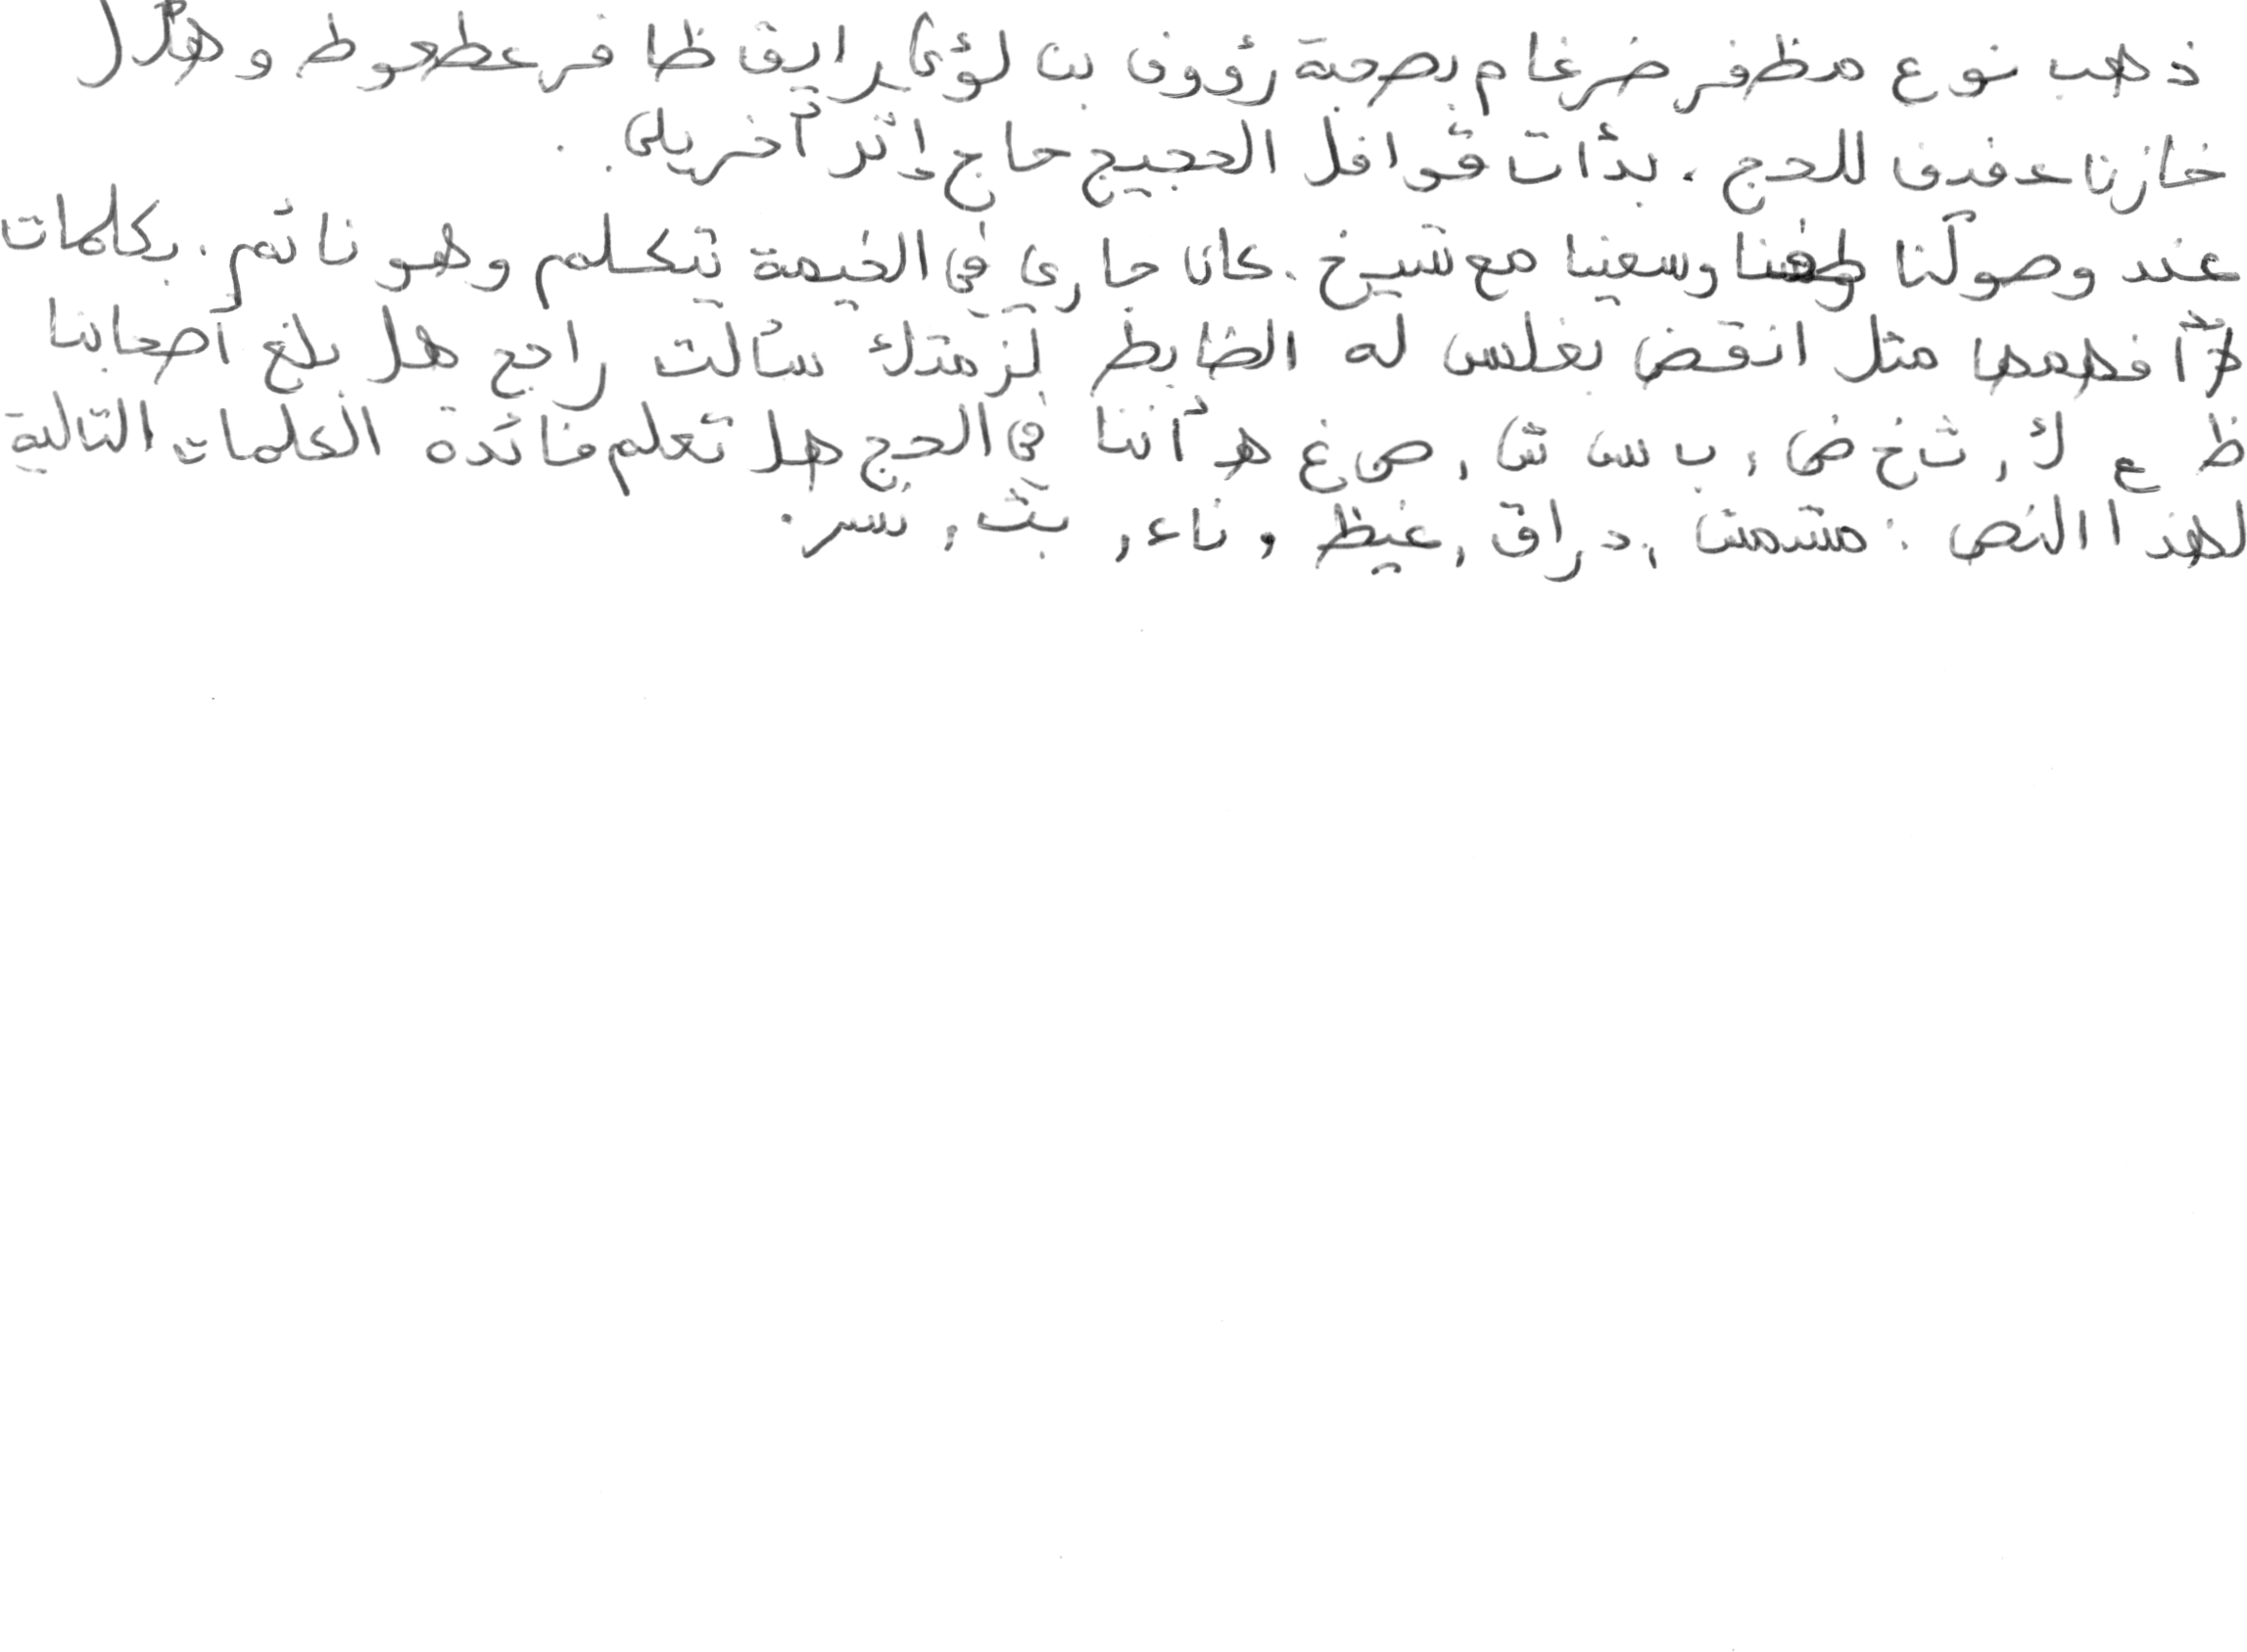 ذهب نوع مظفر ضرغام بصحبة رؤوف بن لؤي رايق ظافر عطعوط و هلال
خازنا عفدق للحج . بدأت قوافل الحجيج حاج إثر آخر يلي .
عند وصولنا طفنا وسعينا مع شيخ . كان جاري في الخيمة يتكلم وهو نائم . بكلمات
لا أفهمها مثل انقض بغلس له الضابظ لزمتك سألت راجح هل بلغ أصحابنا
ظ ع ك , ث خ ض , ب س ش , ص غ هـ أننا في الحج هل تعلم فائدة الكلمات التالية
لهذا النص : مشمش , دراق , غيظ , ناء , بث , نسر .